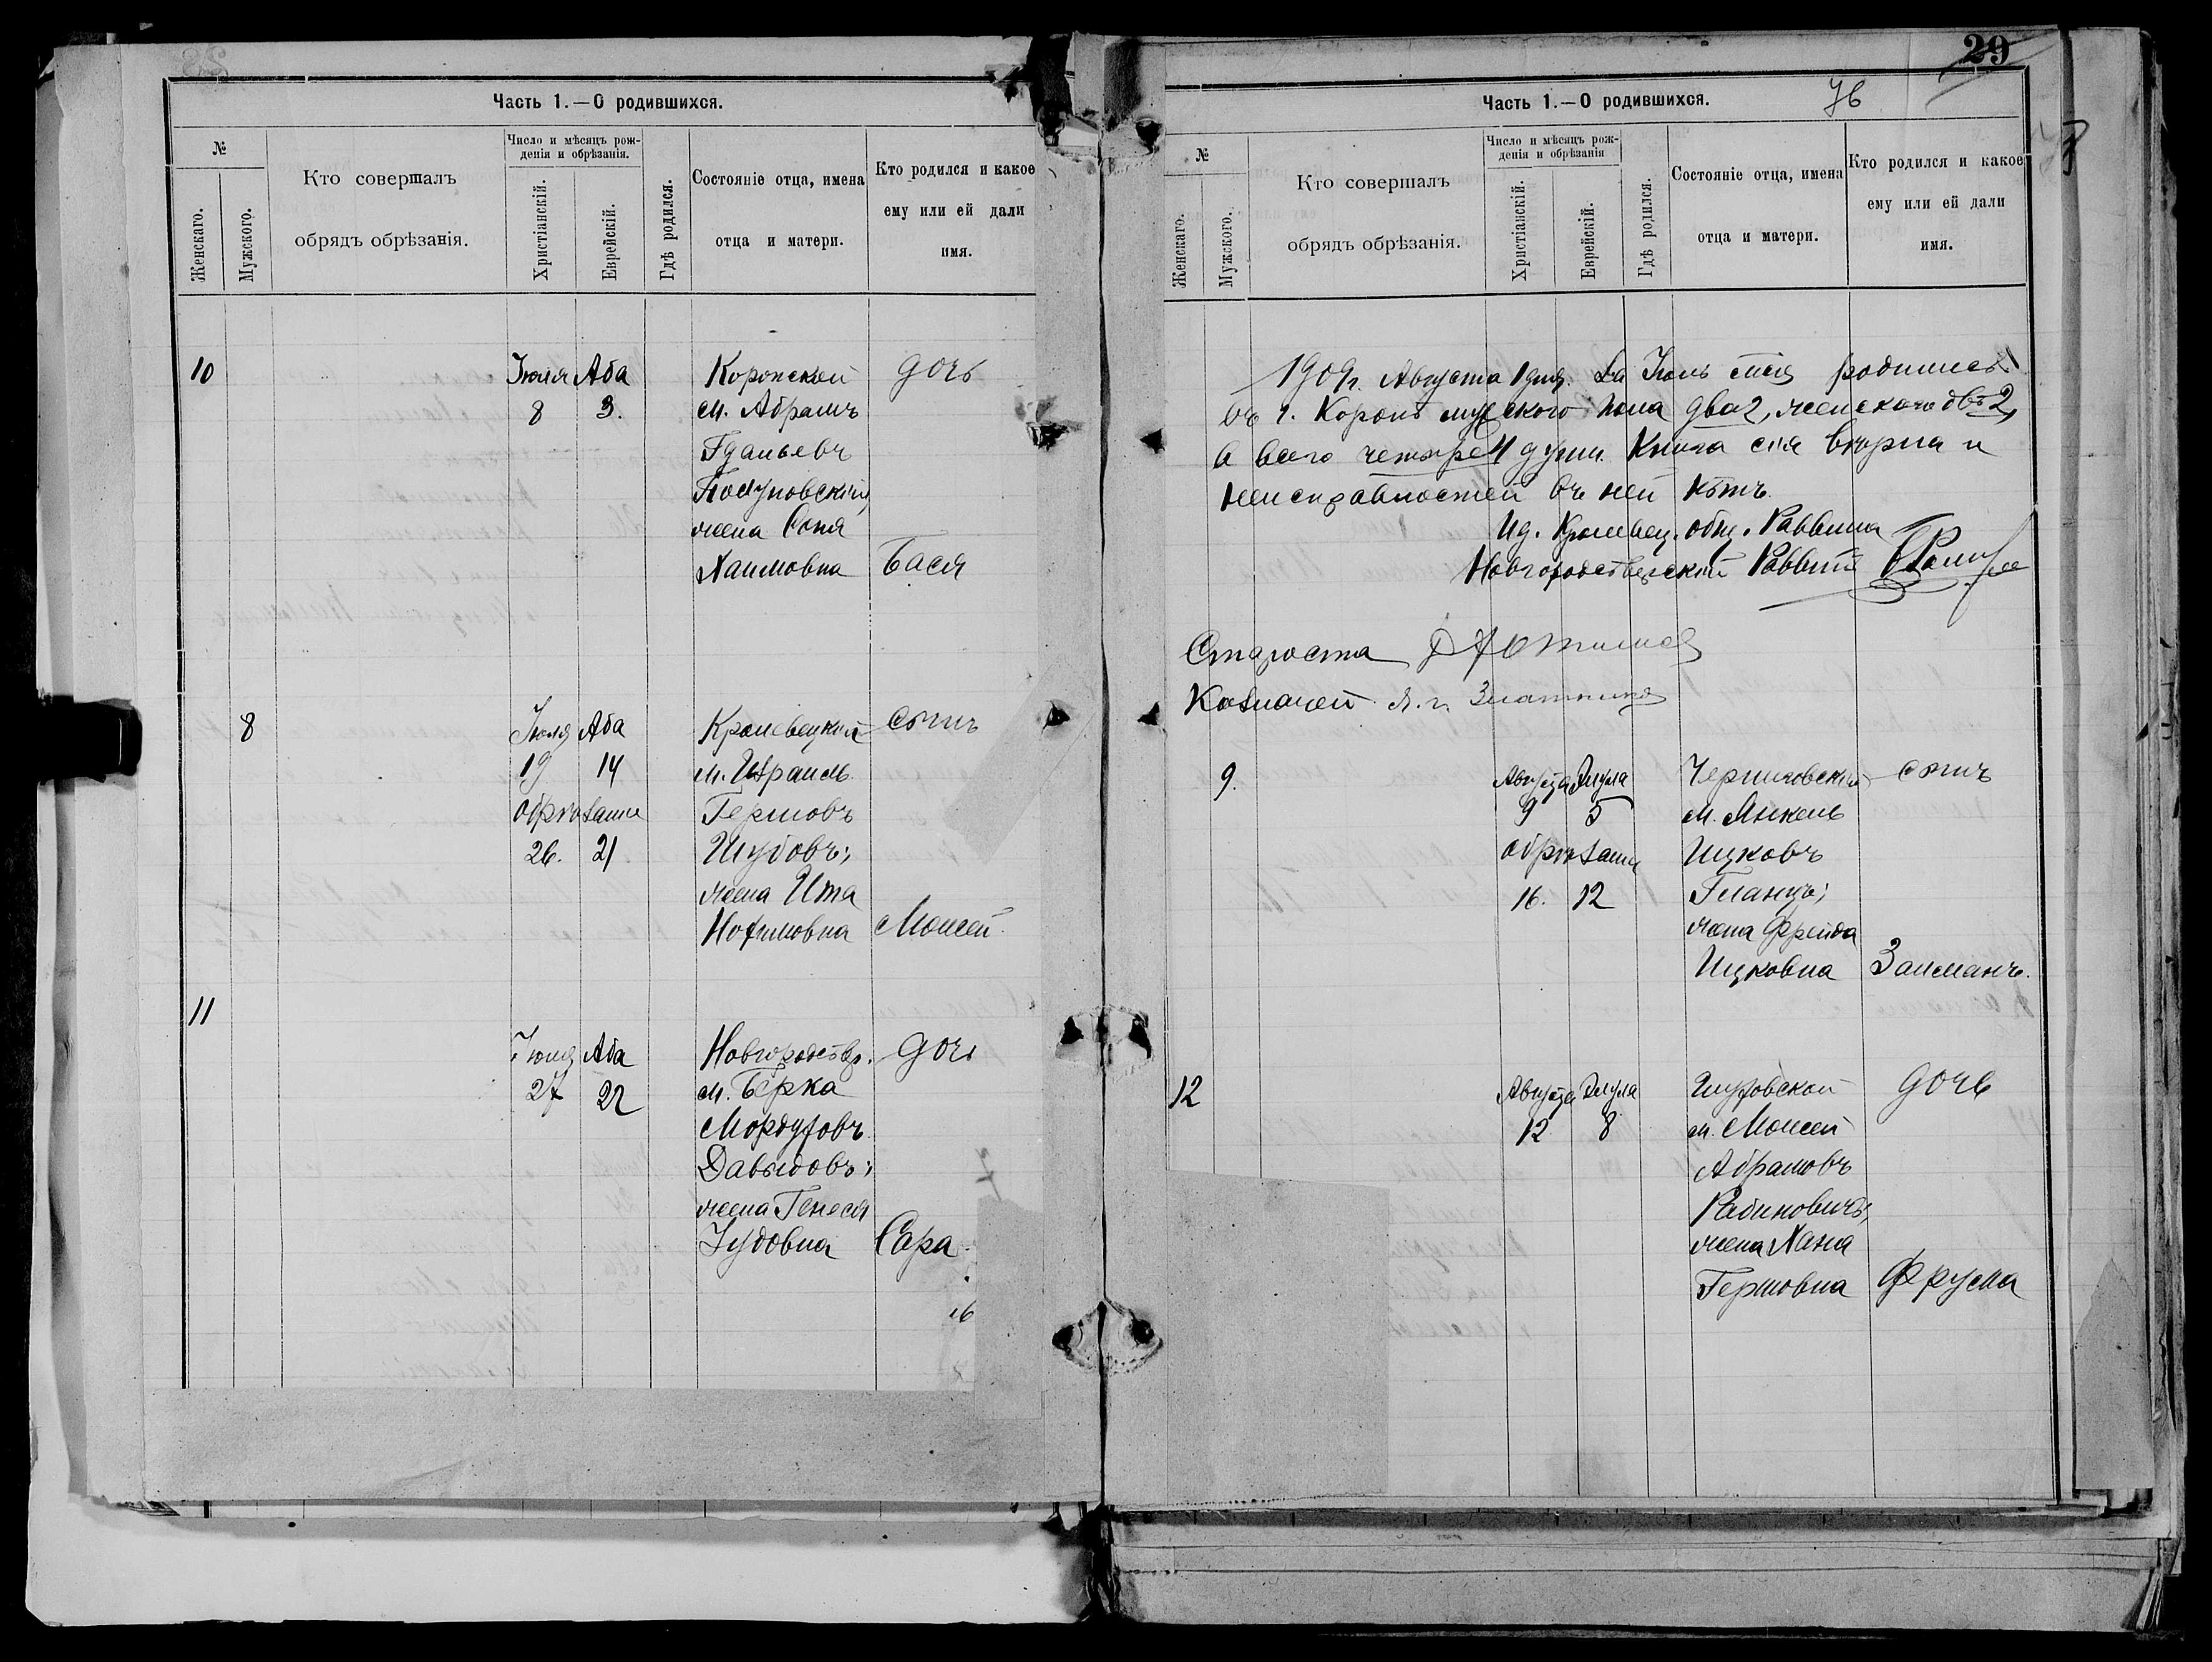 Часть 1.—О родившихся.
№
Женскаго.
Мужского.
Кто совершалъ
обрядъ обрѣзанія.
Число и мѣсяцъ рож-
денія и обрѣзанія.
Христіанскій.
Еврейскій.
Гдѣ родился.
Состояніе отца, имена
отца и матери.
Кто родился и какое
ему или ей дали
имя.
10 Іюля Аба Коропской дочь
8 3. м. Абрамъ
Гдальевъ
жена Соня
Хаимовна Бася
8 Іюля Аба Кролевецкій сынъ
19 14 м. Израиль
обрѣзанъ Гершовъ
26. 21 Шубовъ;
жена Ита
Нохимовна Моисей.
11
Іюля Аба Новгородсѣв. дочь
27 22 м. Берка
Мордуховъ
Давыдовъ;
жена Генеся
Іудовна Сара.
29
76
Часть 1.—О родившихся.
№
Женскаго.
Мужского.
Кто совершалъ
обрядъ обрѣзанія.
Число и мѣсяцъ рож-
денія и обрѣзанія
Христіанскій.
Еврейскій.
Гдѣ родился.
Состояніе отца, имена
отца и матери.
Кто родился и какое
ему или ей дали
имя.
1909г. Августа 1 дня. За Іюль мѣсяцъ родились
въ г. Коропѣ мужского пола два 2, женскаго двѣ 2,
а всего четыре 4 души. Книга сія вѣрна и
неисправностей въ ней нѣтъ.
Ид. Кролевец. общ. Раввина
Новгородсѣверскій Раввинъ
Староста
Казначей Я. г. Златкинъ
9. Августа Элула Черниговскій сынъ
9 5 м. Янкель
обрѣзанъ Ицковъ
16. 12 Гланцъ;
жена Фрейда
Ицковна Залманъ.
12 Августа Элула дочь
12 8 м. Моисей
Абрамовъ
Рабиновичъ,
жена Хана
Гершовна Фрума